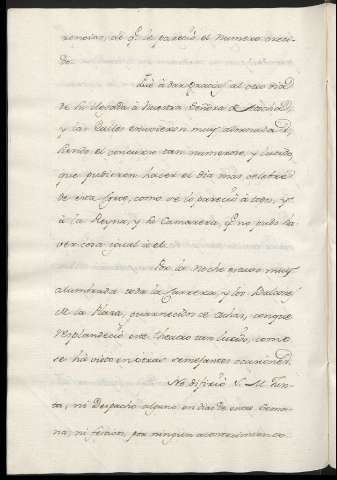 rencias, de q.e le pareció el numero creci-
do.
Fué à dar gracias al otro dia
de su llegada à Nuestra Señora de Atocha,
y las Calles estuvieron muy adornadas,
siendo el concurso tan numeroso, y lucido,
que pudieron hacer el dia mas celebre
de esta Corte, como se lo pareció à todos, y
à la Reyna, y su Camarera, q.e no pudo ha-
ver cosa igual à el.
Por la noche estuvo muy
alumbrada toda la Carrera, y los Balcones
de la Plaza, guarnecidos de achas, conque
resplandeció este theatro tan lucido, como
se ha visto en otras semejantes ocasiones.
No difirió S. M. Jun-
ta, ni Despacho alguno en dias de entre Sema-
na, ni festivos, por ningun acontecimiento